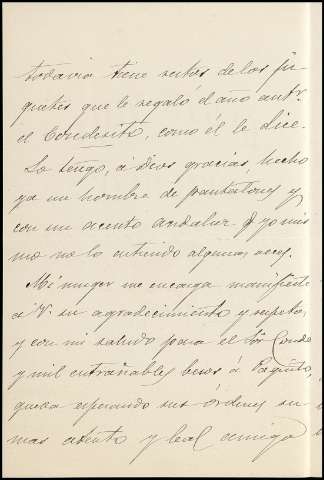 todavia tiene restos de los ju-
guetes que le regaló el año antr.
el Condesito, como él le dice.
Lo tengo, á Dios gracias, hecho
ya un hombre de pantalones y
con un acento andaluz q yo mis-
mo no lo entiendo algunas veces.
Mi muger me encarga manifieste
á V. su agradecimiento y respeto,
y con mi saludo para el Sor Conde
y mil entrañables besos á Paquito,
queda esperando sus órdenes su
mas atento y leal amigo